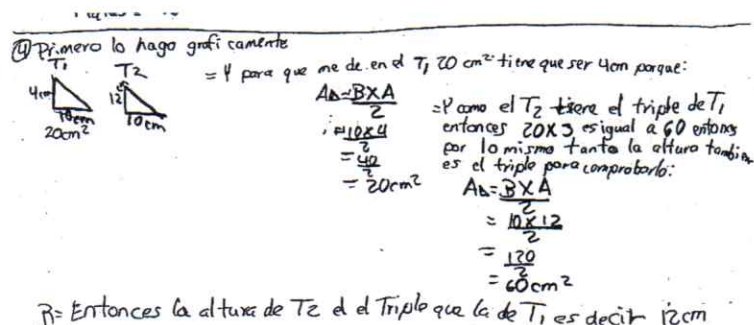 ④ Primero lo hago graficamente
T1
T2
4cm
10cm
20cm²
12
10cm
= Y para que me de en el T1 20 cm² tiene que ser 4cm porque:
A△=BXA
2
=10x4
2
=40
2
= 20cm²
=Y como el T2 tiene el triple de T1
entonces 20X3 es igual a 60 entons
por lo mismo tanto la altura tambien
es el triple para comprobarlo:
A△=BXA
2
= 10x12
2
= 120
2
= 60cm²
R= Entonces la altura de T2 el el Triple que la de T1 es decir 12cm